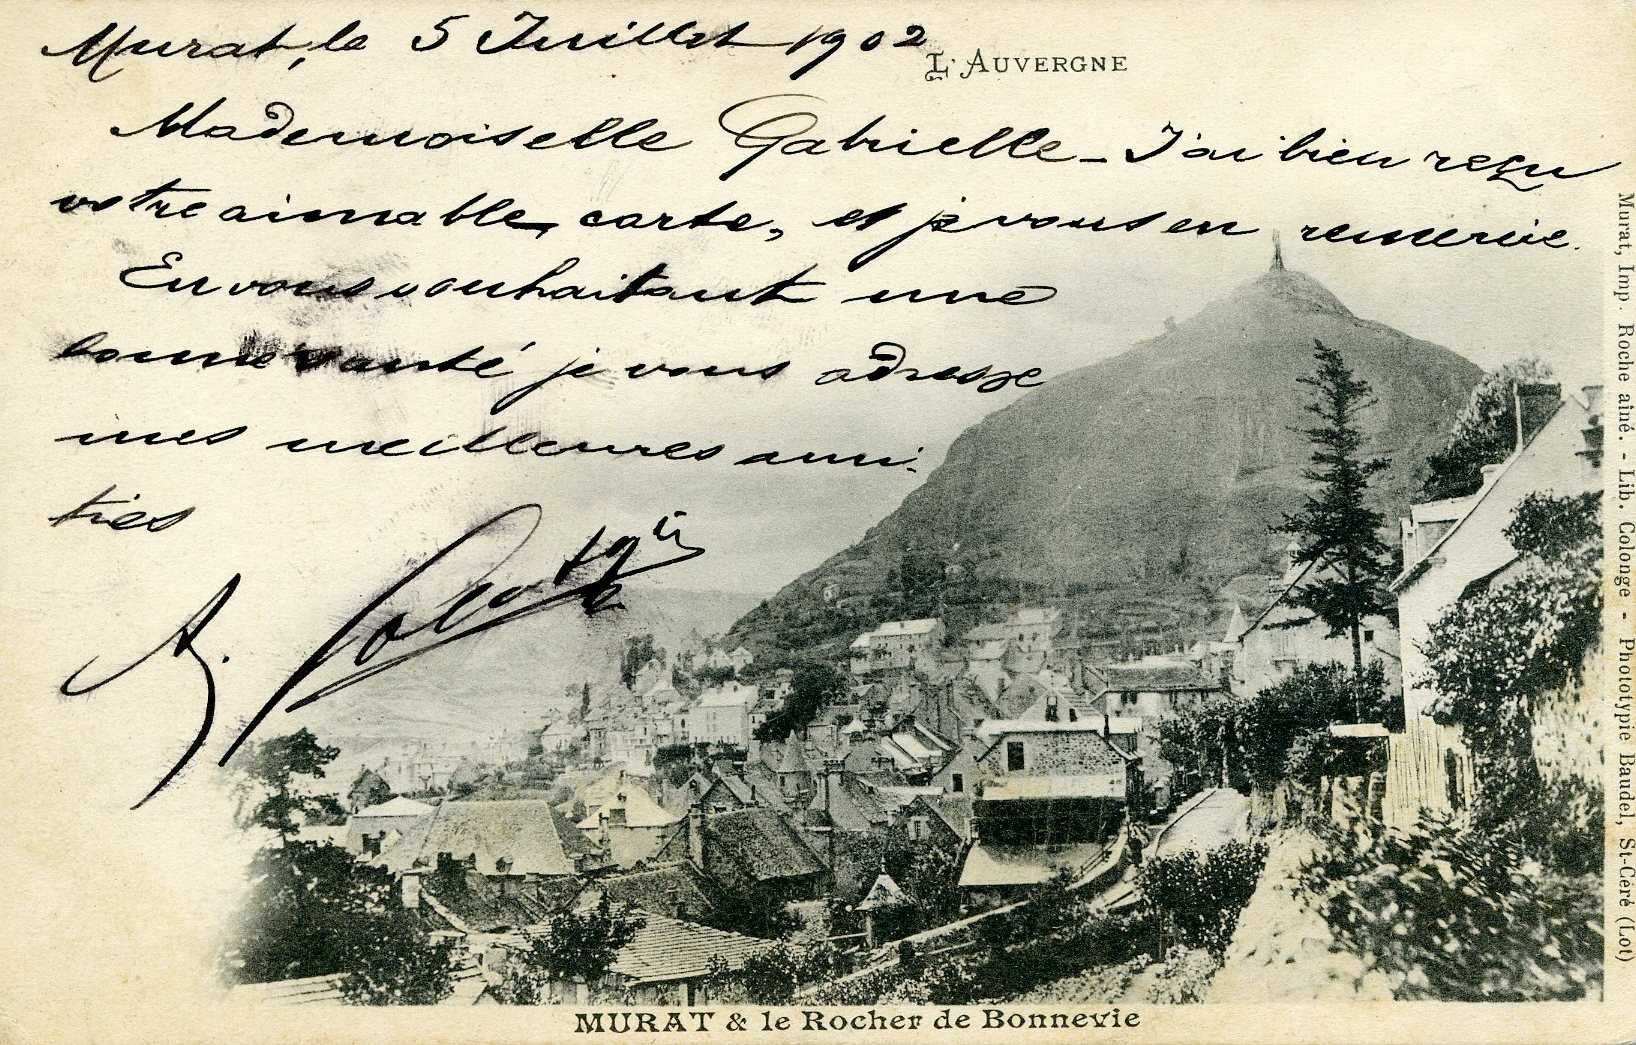 Murat, le 5 Juillet 1902
L'AUVERGNE
Mademoiselle Gabrielle – J'ai bien reçu
votre aimable carte, et je vous en remercie.
En vous souhaitant une
bonne santé je vous adresse
mes meilleures ami-
tiés
A.
MURAT & le Rocher de Bonnevie
Murat, Imp. Roche aîné. - Lib. Colonge - Phototypie Baudel, St-Céré (Lot)